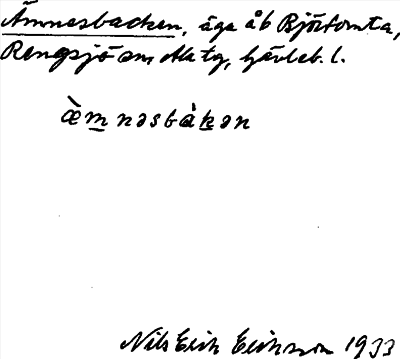 Ämnesbacken, äga åb Björtomta,
Rengsjö sn, Ala tg, Gävleb. l.
æ̀mnəsbàkən
Nils Erik Eriksson 1933